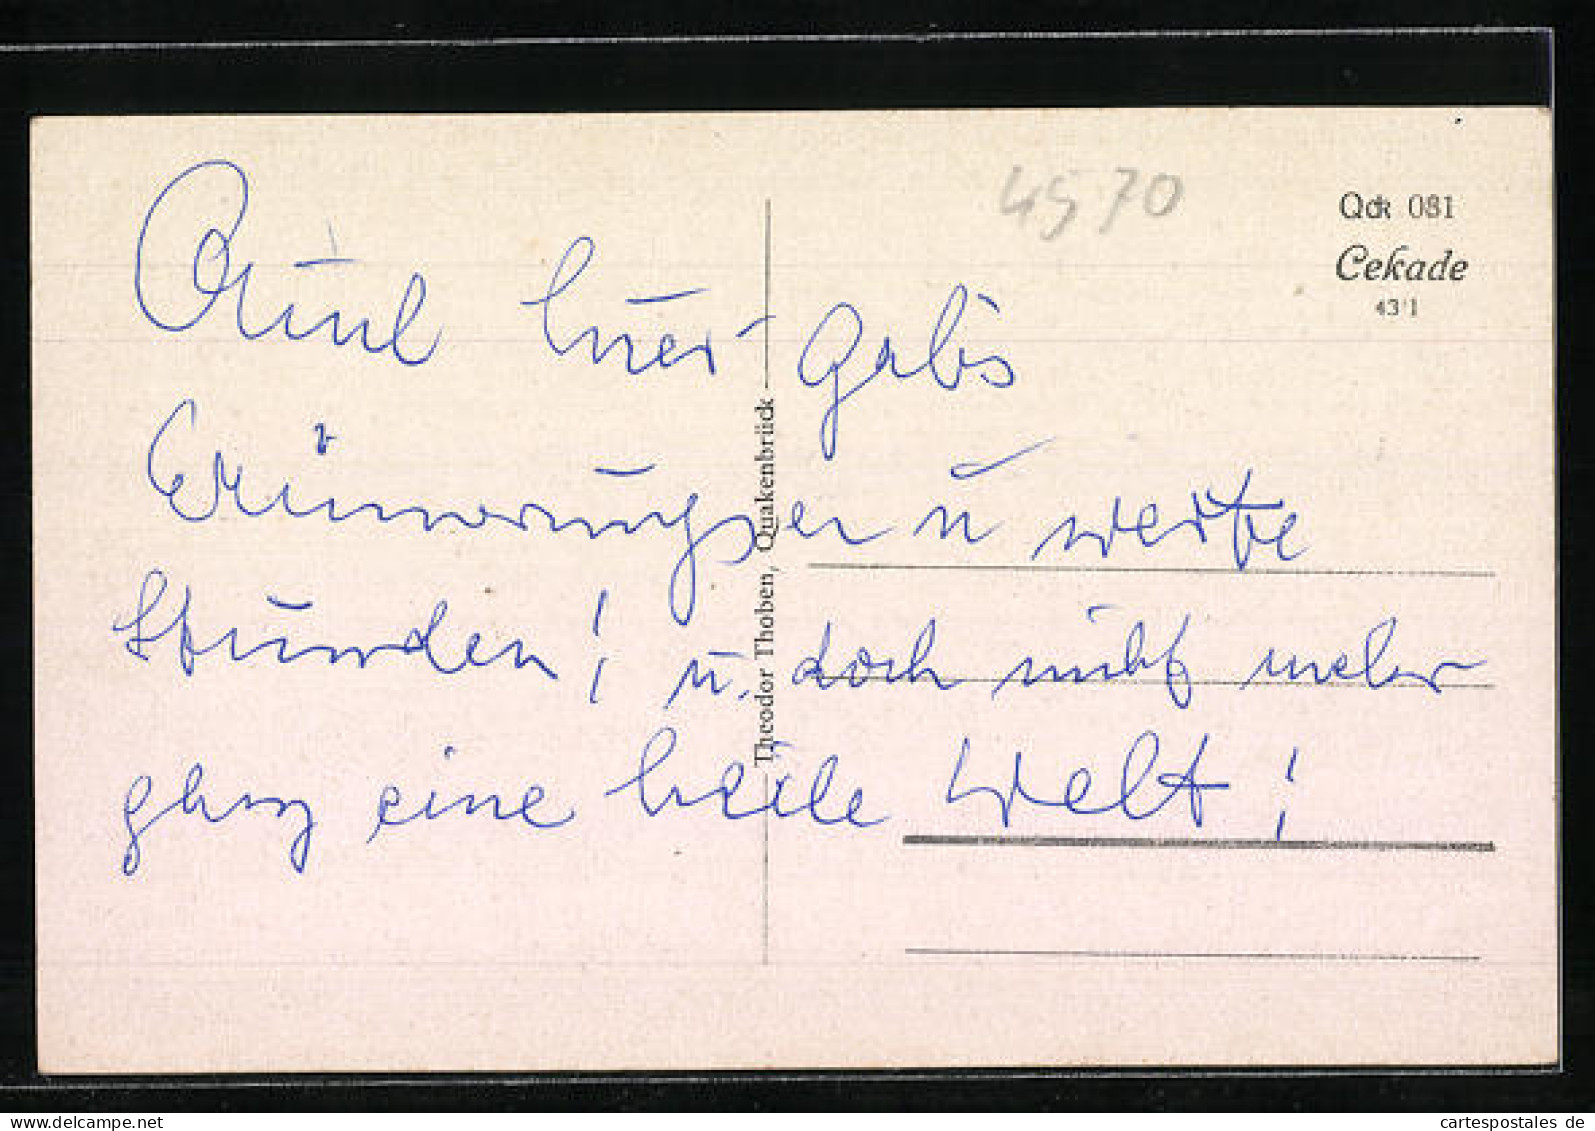 Auch hier gab's
Erinnerungen u werte
Stunden! u. doch nicht mehr
ganz eine heile Welt!
4570
Qck 081
Cekade
43'1
Theodor Thoben, Quakenbrück
cartespostales de